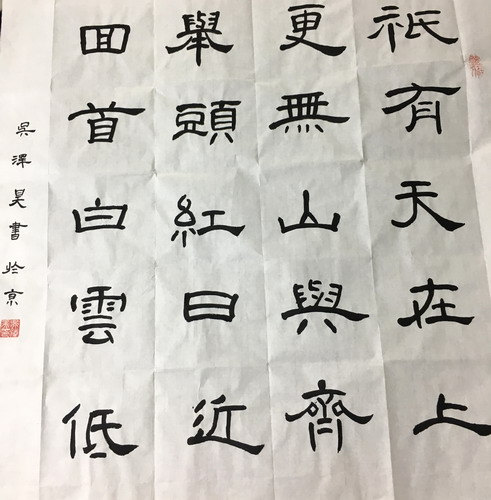 祇有天在上
更無山與齊
舉頭紅日近
回首白雲低
吳澤昊書於京